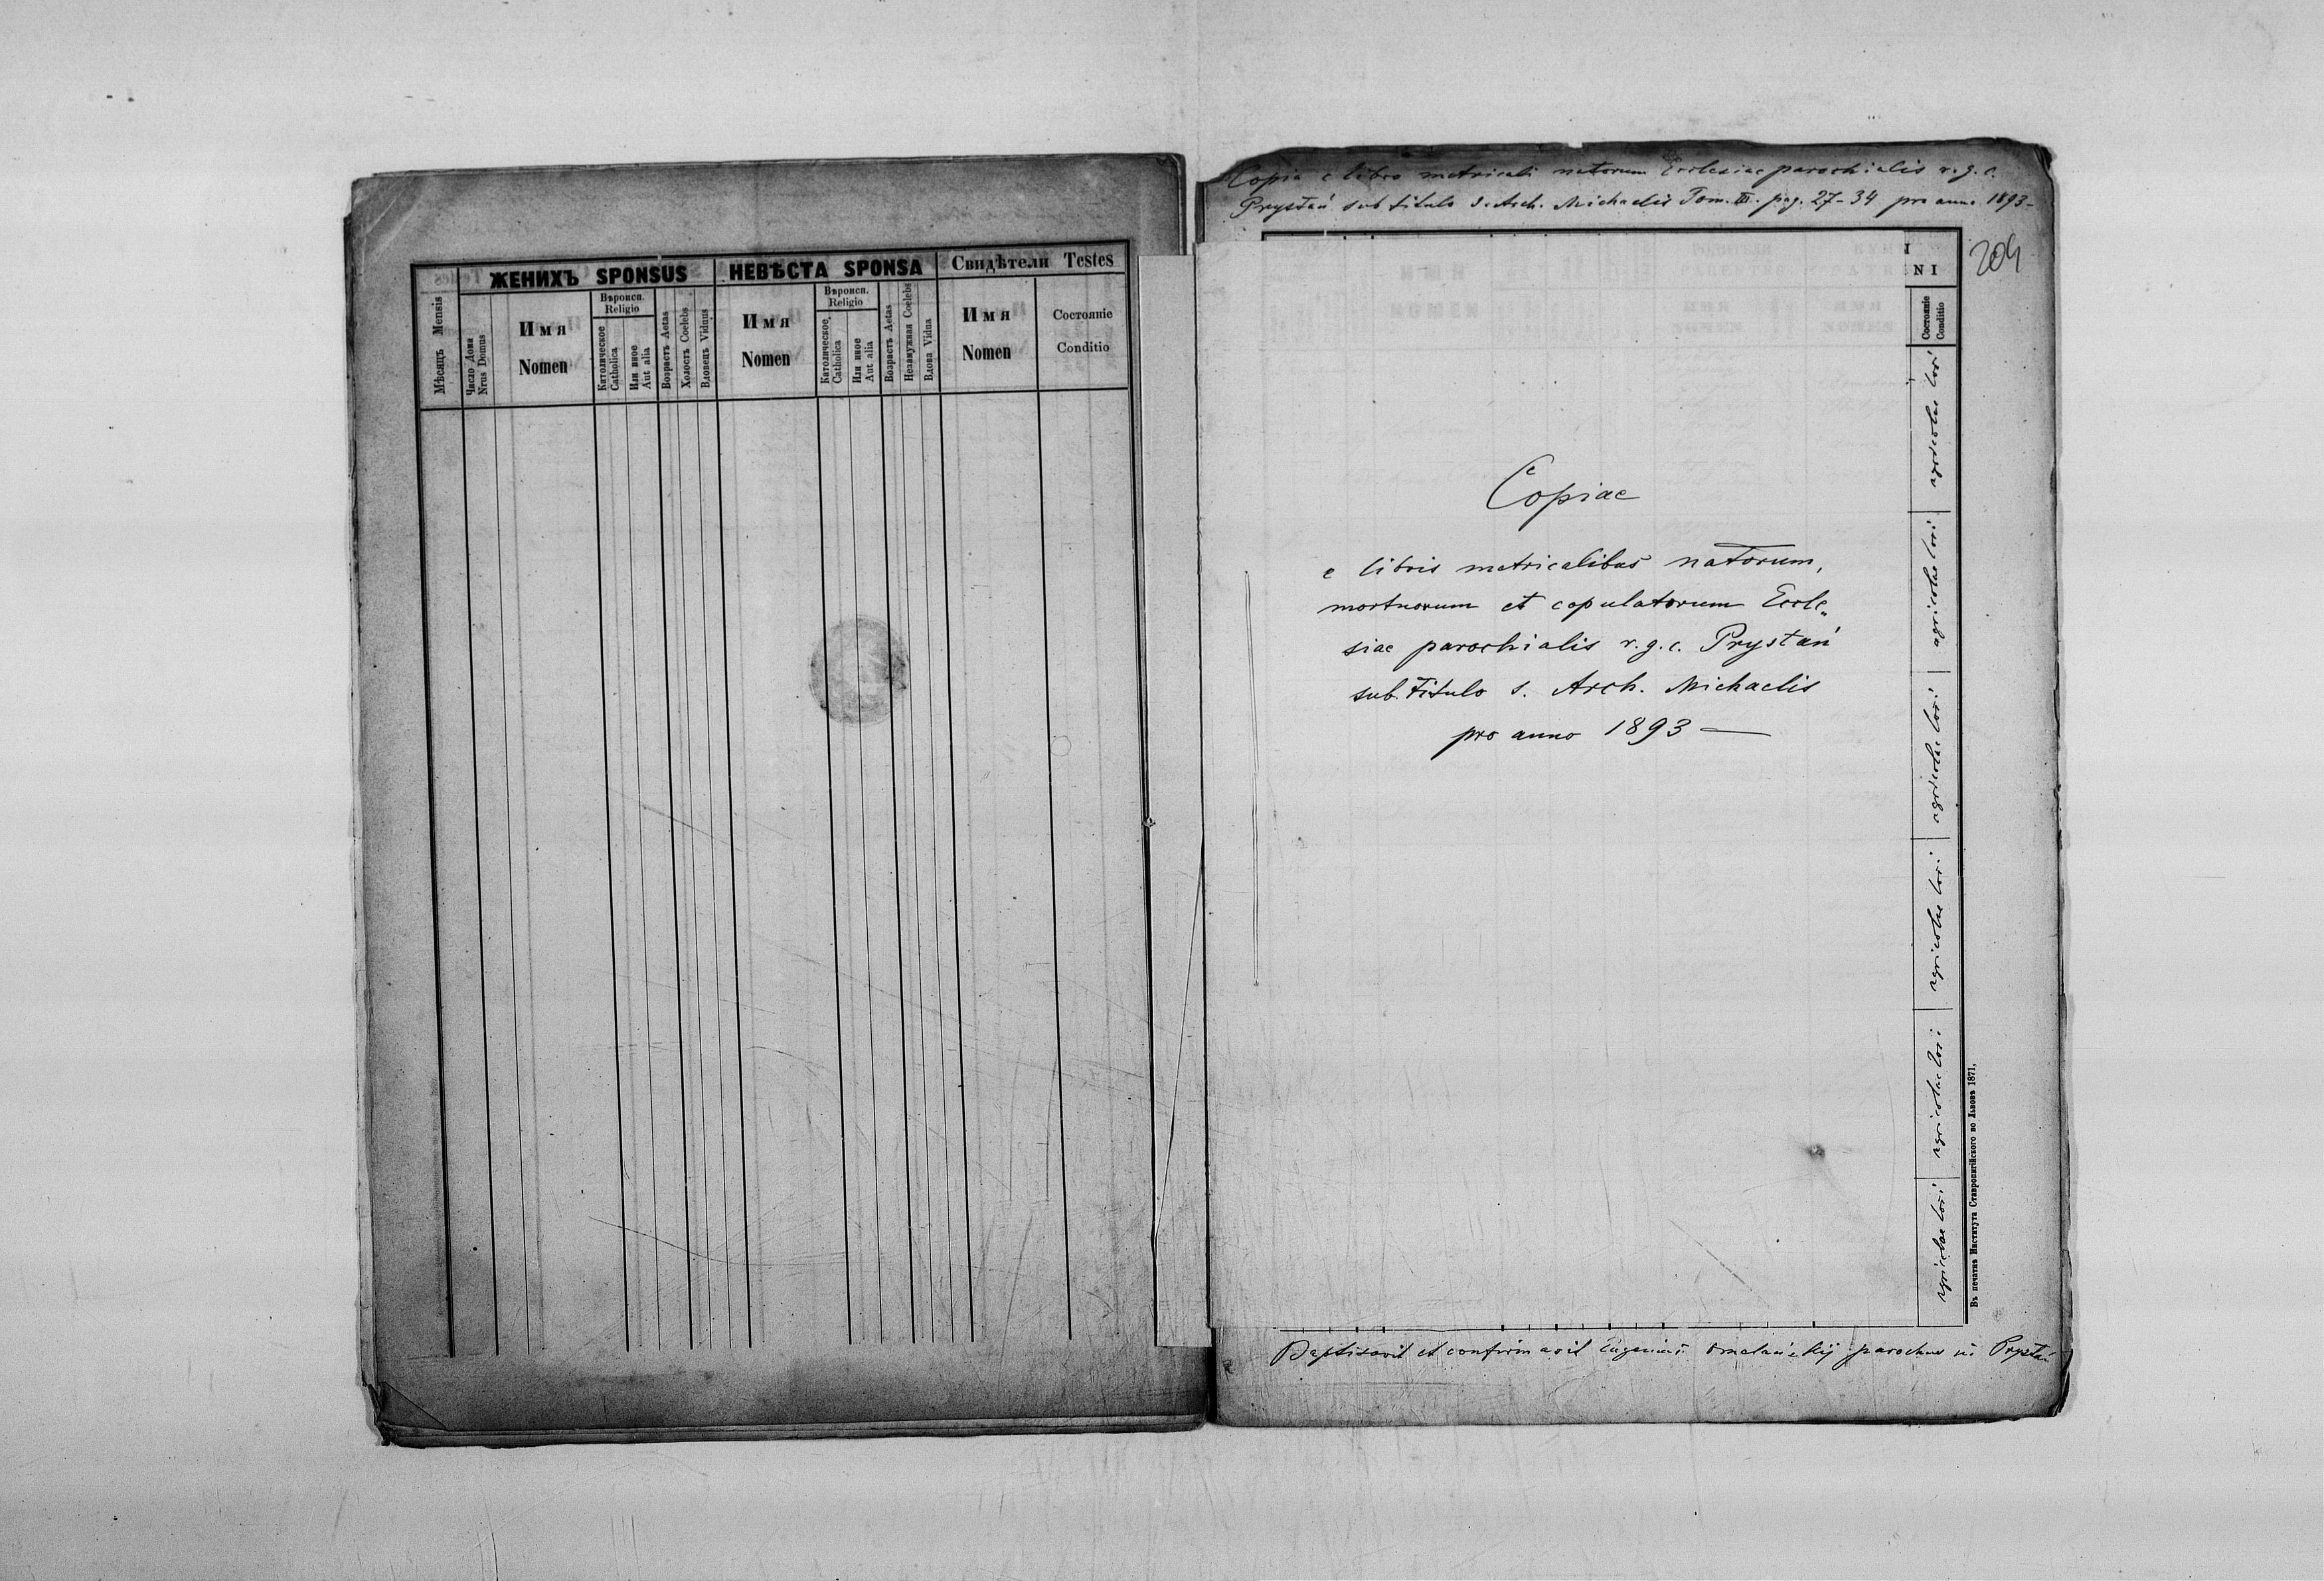 ЖЕНИХЪ SPONSUS
НЕВѢСТА SPONSA
Свидѣтели Testes
Мѣсяцъ Mensis
Число Дома
Nrus Domus
Имя
Nomen
Вѣроисп.
Religio
Католическое
Catholica
Или иное
Aut alia
Возрастъ Aetas
Холостъ Coelebs
Вдовецъ Viduus
Имя
Nomen
Вѣроисп.
Religio
Католическое
Catholica
Или иное
Aut alia
Возрастъ Aetas
Незамужная Coelebs
Вдова Vidua
Имя
Nomen
Состояніе
Conditio
Copia e libro metricali natorum Ecclesiae parochialis r. g. c.
Prystań sub titulo s. Arch. Michaelis Tom. III. pag. 27-34 pro anno 1893 -
204
I
NI
Состояніе
Conditio
Copiae
e libris metricalibus natorum,
mortuorum et copulatorum Eccle„
siae parochialis r. g. c. Prystań
sub titulo s. Arch. Michaelis
pro anno 1893 —
agricolae loci
agricolae loci
agricolae loci
agricolae loci
agricolae loci
agricolae loci
Въ печатнѣ Института Ставропигійского во Львовѣ 1871,
Baptisavit et confirmavit Eugenius parochus in Prystań